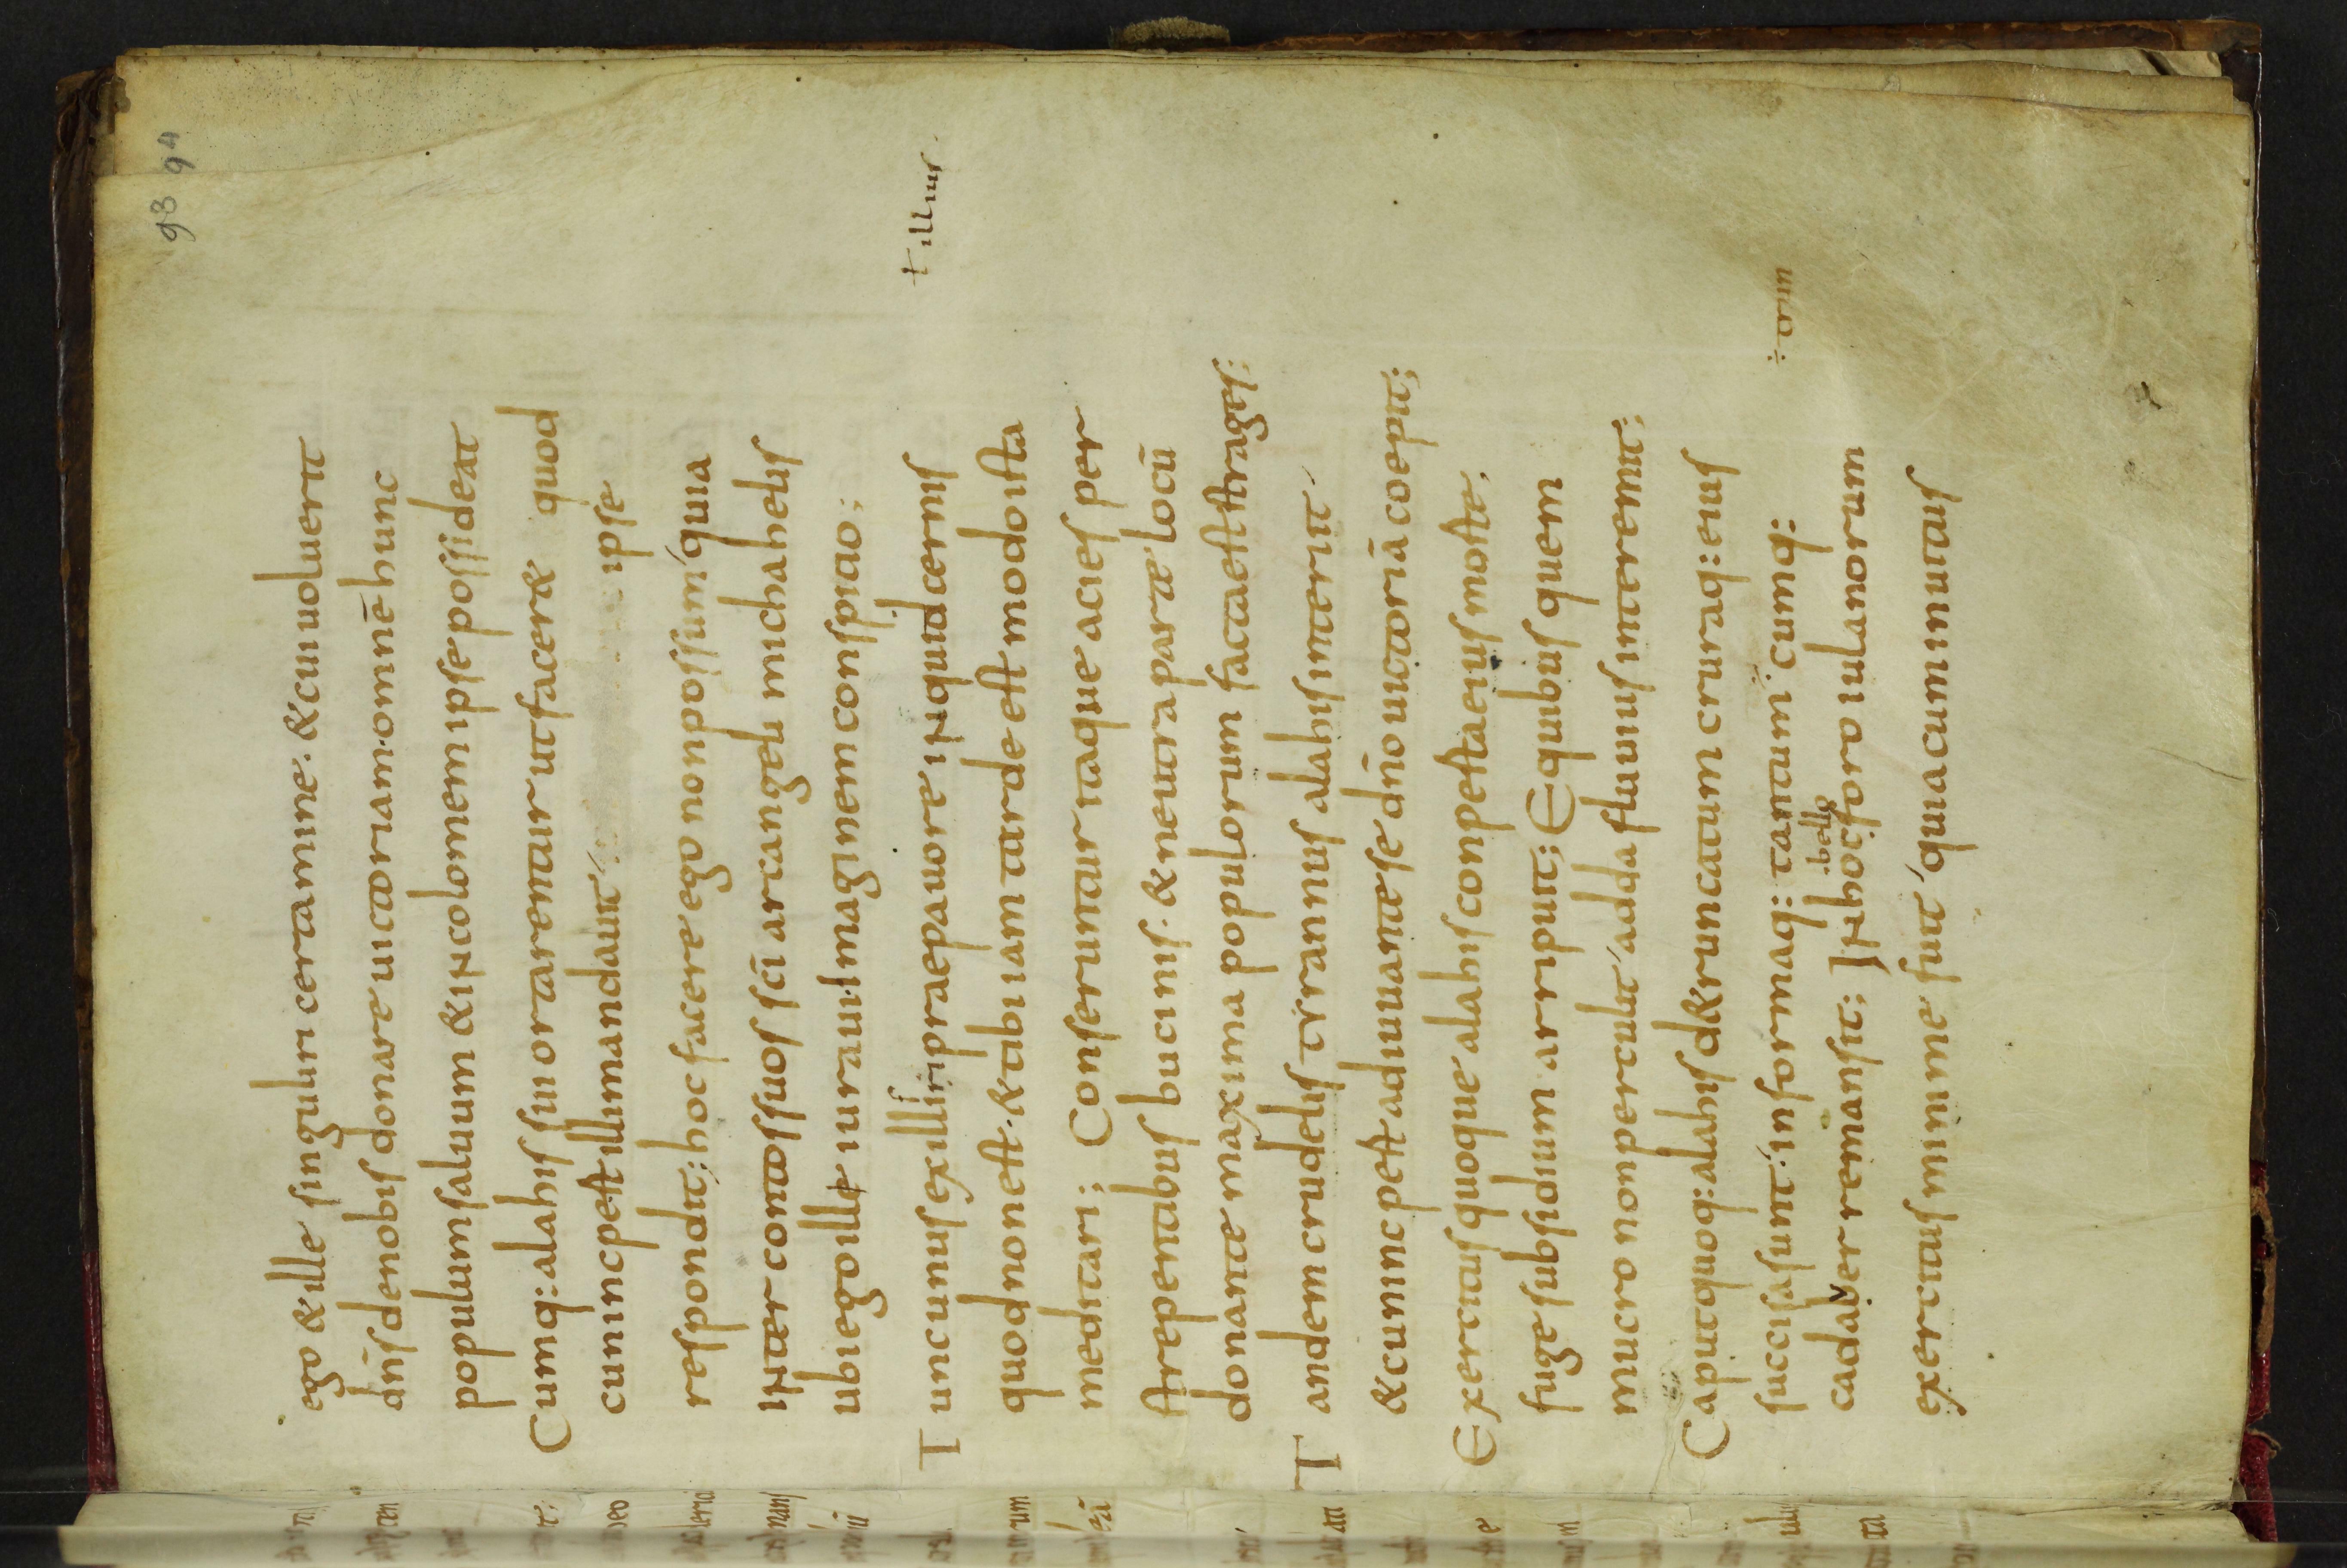 93 94
ego & ille singuluri certamine. & cui uoluerit
dn̄s denobis donare uictoriam. omnē hunc
populum saluum & incolomem ipse possideat
Cumq: alahis sui ortarentur ut facer& quod
cuninc pest illi mandauit ipse
respondit; hoc facere ego non possum quia
inter contos suos sc̄i arcangeli michahelis
ubi ego ille iuraui. Imaginem conspicio;
Tunc unus ex illis prae pauore inquid cernis
ł illius
quod non est. & tibi iam tarde est modo ista
meditari; Conseruntur itaque acies per
strepentabus bucinis. & neutra parte locū
donante maxima populorum facta est strages:
Tandem crudelis tirannus alahis interiit
& cuninc pest adiuuante se dn̄o uictoriā coepit;
Exercitus quoque alahis conpesta eius moste;
fuge subsidium arripuit; E quibus quem
mucro non perculit adda fluuius interemit;
Caput quoq: alahis d&runcatum cruraq: eius
succisa sunt. informaq: tantum. cumq:
÷ torum
bello
cadaber remansit; In hoc foro iulanorum
exercitus minime fuit quia cum inuitus